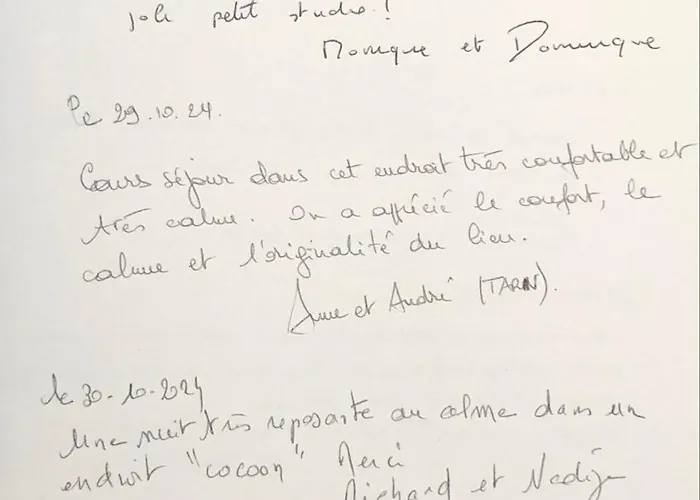 joli petit studio !
Monique et Dominique
le 29.10.24.
Cours séjour dans cet endroit très confortable et
très calme. On a apprécié le confort, le
calme et l'originalité du lieu.
Anne et André (TARN).
le 30-10-2024
Une nuit très reposante au calme dans un
endroit "cocoon" Merci
Richard et Nadège